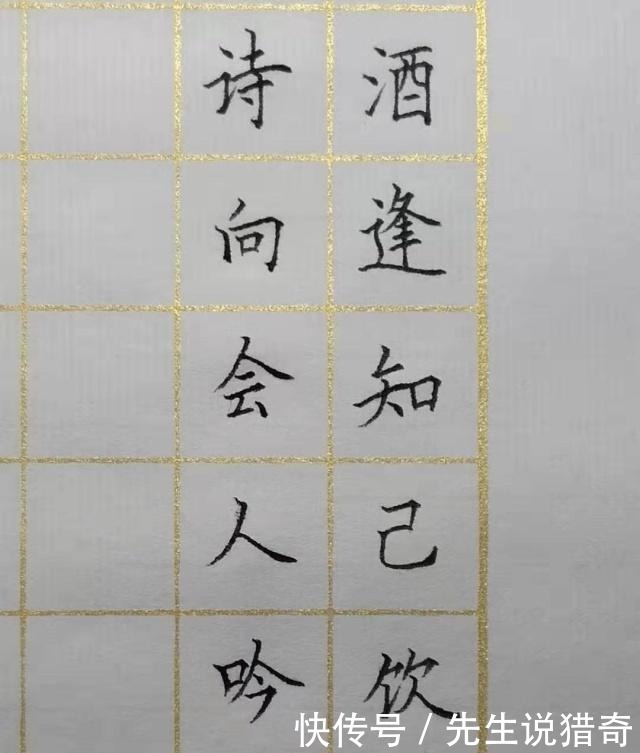 酒逢知己饮
诗向会人吟
快传号/先生说猎奇